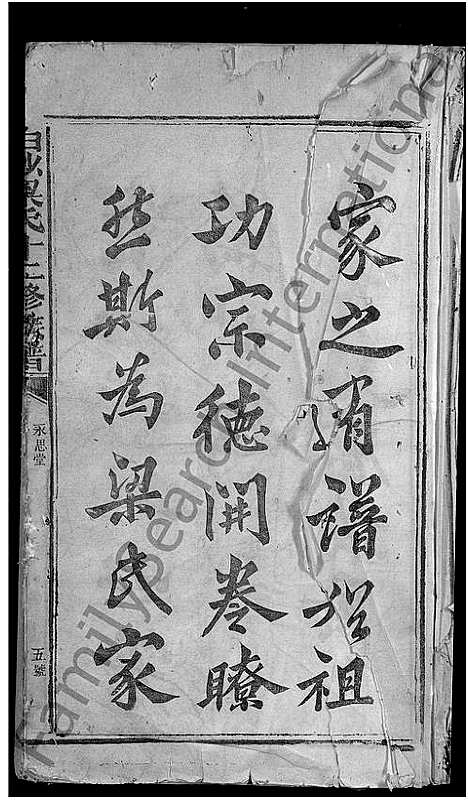 家之有譜從祖
功宗徳開卷瞭
然斯為梁氏家
吳氏十二修族譜
永思堂
五號
FamilySearch International